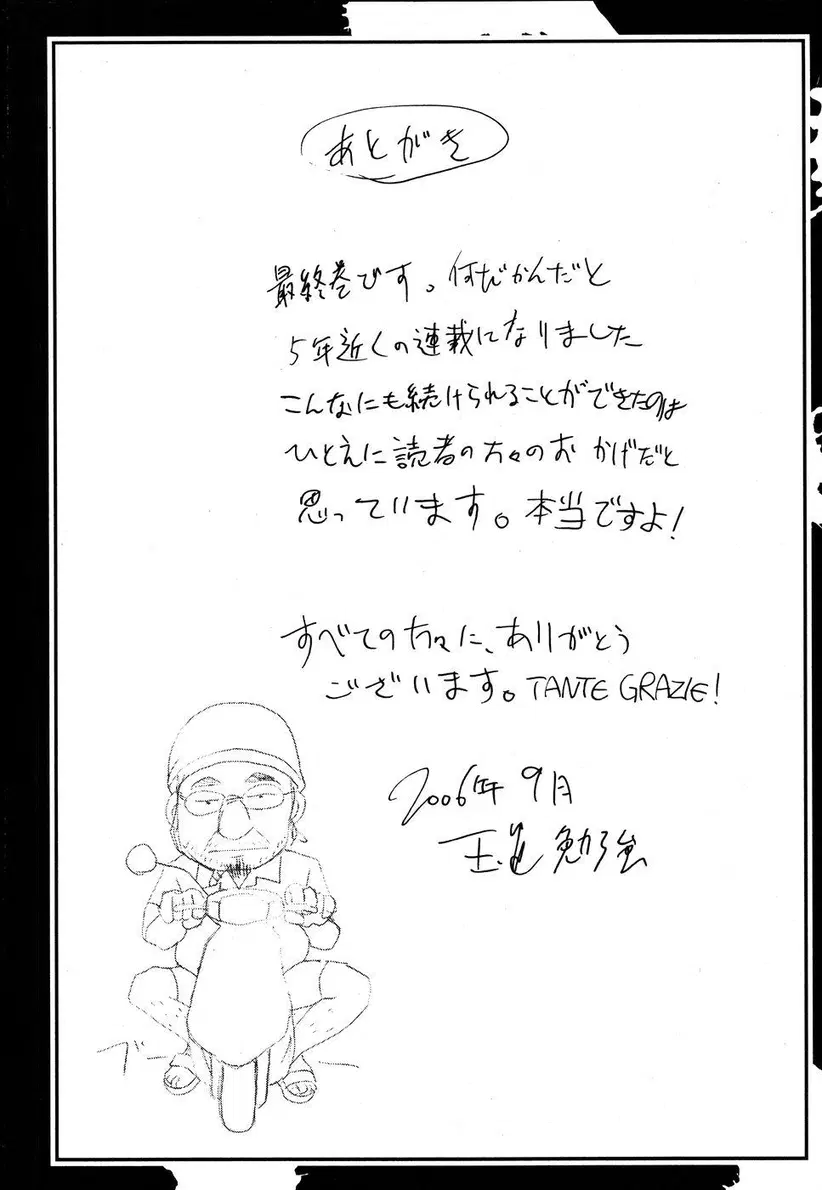 あとがき
最終巻です。何だかんだと
5年近くの連載になりました
こんなにも続けられることができたのは
ひとえに読者の方々のおかげだと
思っています。本当ですよ!
すべての方々に、ありがとう
ございます。TANTE GRAZIE!
2006年9月
王道勉強
ブー